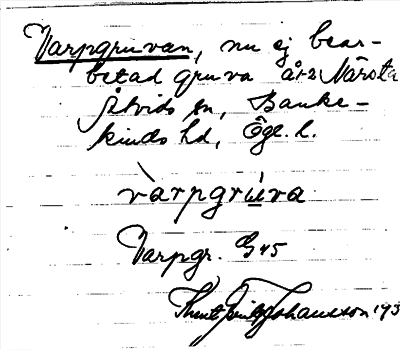 Varpgruvan, nu ej bear-
betad gruva å Närsta
Åtvids sn, Banke-
kinds hd, Ögl. l.
vàrpgrúva
Varpgr. G45
Knut Johansson 193